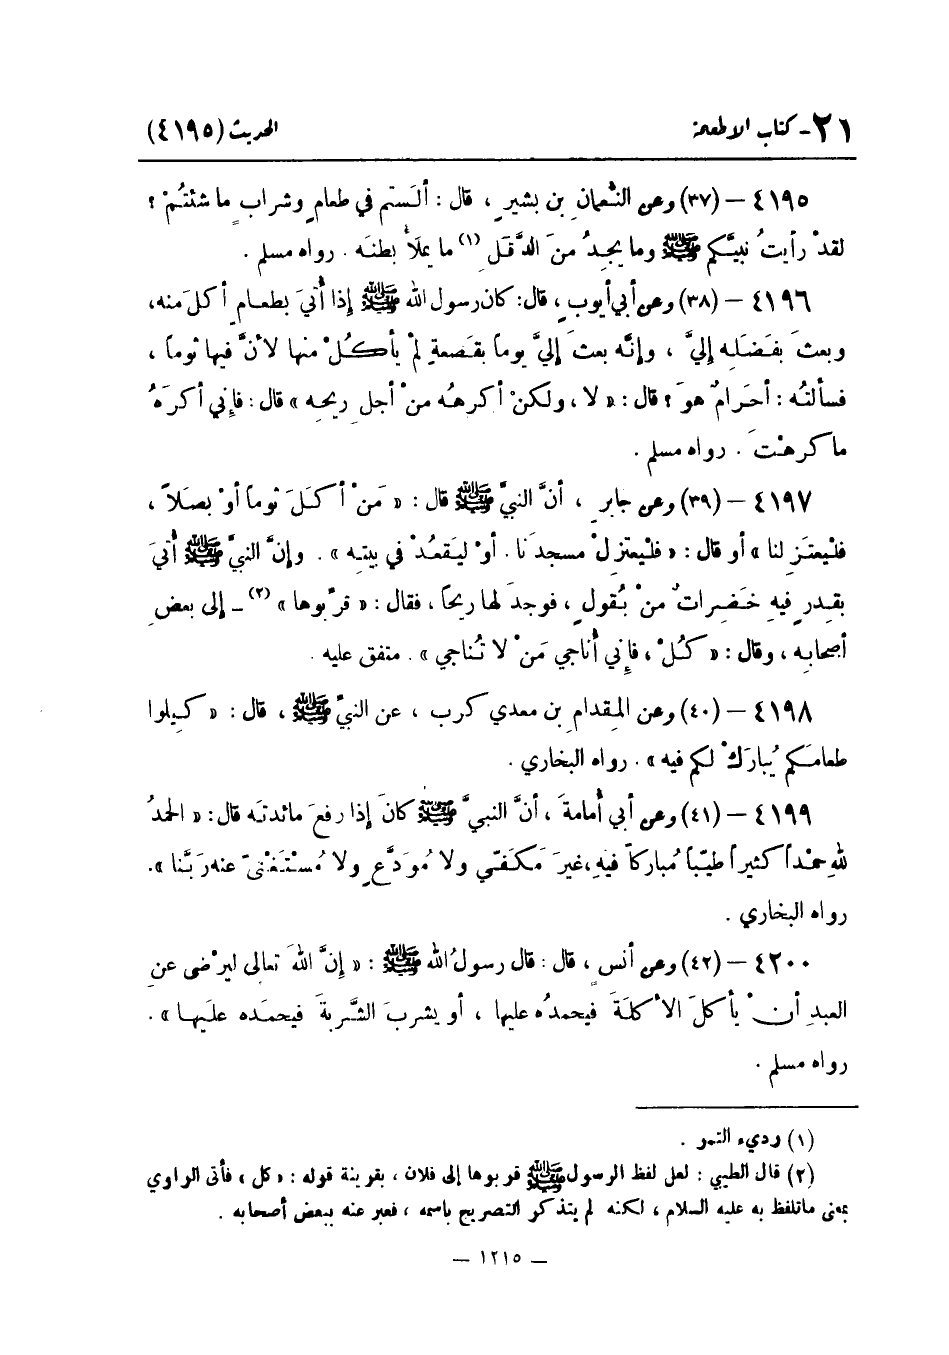 ٢١- كتاب الأطعمة الحديث (٤١٩٥)
٤١٩٥ – (٣٧) وعن النُّعمانِ بن بشيرٍ ، قال : ألَستم في طعامٍ وشرابٍ ما شئتُمْ ؟
لقدْ رأيتُ نبيَّكم ﷺ وما يجِدُ منَ الدَّقَلِ (١) ما يملأُ بطنَه . رواه مسلم .
٤١٩٦ – (٣٨) وعن أبي أيوب ، قال : كان رسول الله ﷺ إذا أُتيَ بطعامٍ أكلَ منه،
وبعثَ بفَضلَه إليَّ ، وإنَّه بعثَ إليَّ يوماً بقصعةٍ لمْ يأكُلْ منها لأنَّ فيها ثوماً ،
فسألتُه : أحَرامٌ هوَ ؟ قال : « لا ، ولكنْ أكرهُه منْ أجلِ ريحِه » قال : فإني أكرَهُ
ما كرهْتَ . رواه مسلم .
٤١٩٧ – (٣٩) وعن جابرٍ ، أنَّ النبيَّ ﷺ قال : « مَنْ أكَلَ ثوماً أوْ بصَلاً ،
فلْيعتَزِلنا » أو قال : « فلْيعتزِلْ مسجدَنا . أوْ ليَقعُدْ في بيتِه » . وإنَّ النبيَّ ﷺ أُتيَ
بقِدرٍ فيهِ خَضِراتٌ منْ بُقولٍ ، فوجدَ لها ريحاً ، فقال : « قرِّبوها » (٢) ـ إلى بعضِ
أصحابِه ، وقال : « كُلْ ، فإني أُناجي مَنْ لا تُناجي » . متفق عليه .
٤١٩٨ – (٤٠) وعن المِقدامِ بن معدي كرب ، عن النبيِّ ﷺ ، قال : « كيلوا
طعامَكم يُبارَكْ لكم فيه » . رواه البخاري .
٤١٩٩ – (٤١) وعن أبي أُمامةَ ، أنَّ النبيَّ ﷺ كانَ إذا رفعَ مائدتَه قال : « الحمدُ
للهِ حمْداً كثيراً طيّباً مُباركاً فيهِ، غيرَ مَكفَيٍّ ولا مُودَّعٍ ولا مُسْتَغْنىً عنه ربَّنا ».
رواه البخاري .
٤٢٠٠ – (٤٢) وعن أنسٍ ، قال : قال رسولُ الله ﷺ : « إنَّ اللهَ تعالى ليرْضى عنِ
العبدِ أنْ يأكلَ الأكلَةَ فيحمدُه عليها ، أو يشربَ الشَّربةَ فيحمَده عليها » .
رواه مسلم .
(١) رديء التمر .
(٢) قال الطيبي : لعل لفظ الرسول ﷺ قربوها إلى فلان ، بقرينة قوله : « كل » فأتى الراوي
بمعنى ماتلفظ به عليه السلام ، لكنه لم يتذكر التصريح باسمه ، فعبر عنه ببعض أصحابه .
– ١٢١٥ –